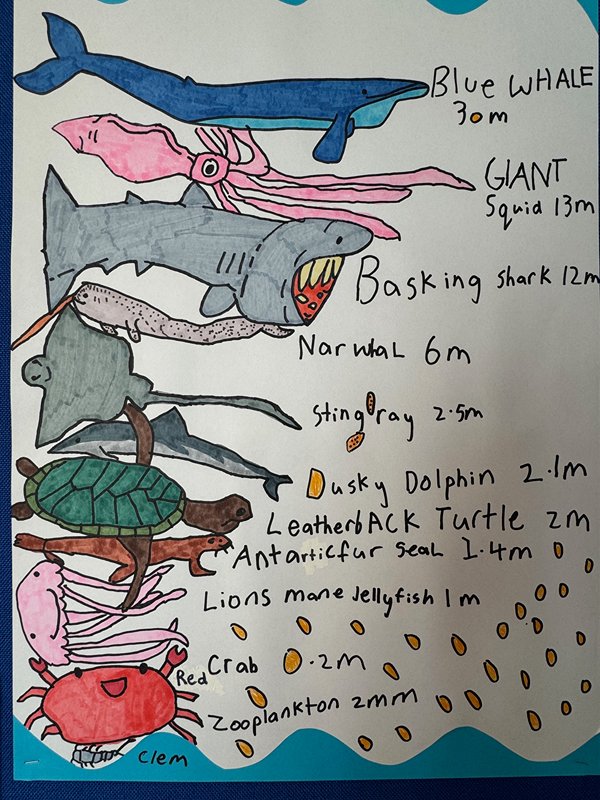 Blue WHALE
30m
GIANT
Squid 13m
Basking shark 12m
Narwhal 6m
Sting ray 2.5m
Dusky Dolphin 2.1m
LeatherbACK Turtle 2m
Antarticfur seal 1.4m
Lions mane Jellyfish 1m
Red Crab 0.2m
Zooplankton 2mm
Clem